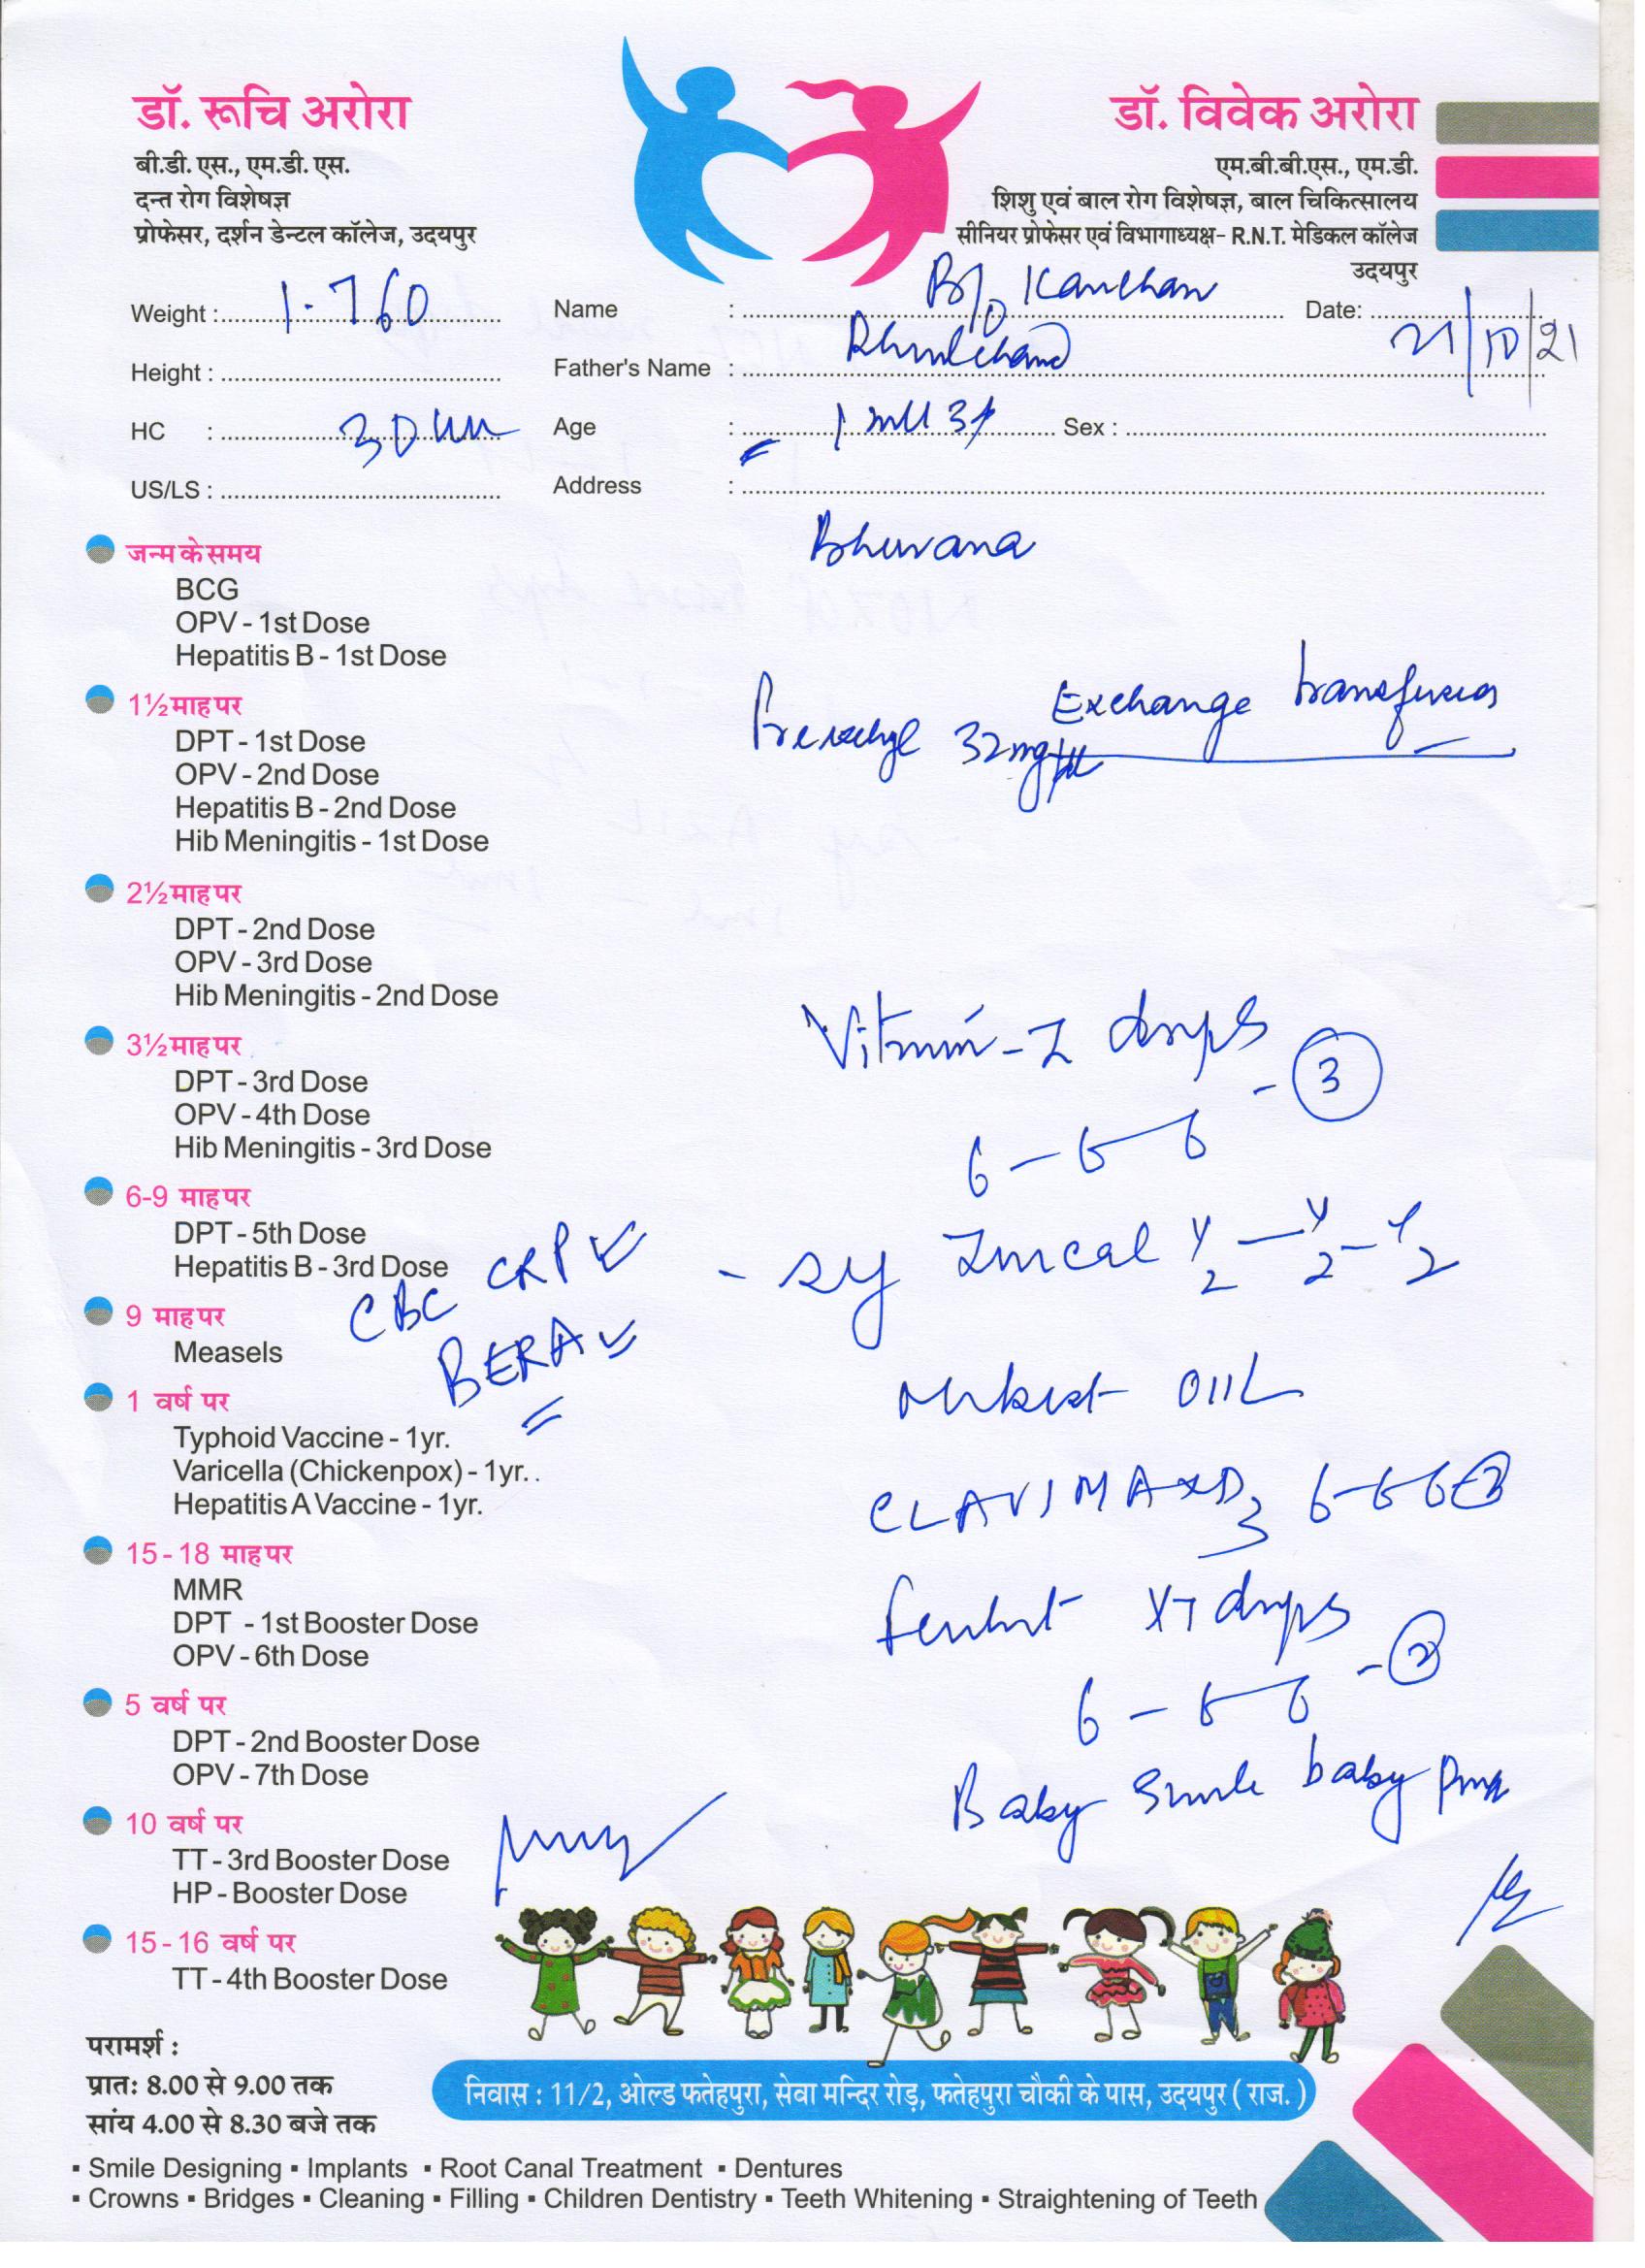 डॉ. रूचि अरोरा
बी.डी. एस., एम.डी. एस.
दन्त रोग विशेषज्ञ
प्रोफेसर, दर्शन डेन्टल कॉलेज, उदयपुर
डॉ. विवेक अरोरा
एम.बी.बी.एस., एम.डी.
शिशु एवं बाल रोग विशेषज्ञ, बाल चिकित्सालय
सीनियर प्रोफेसर एवं विभागाध्यक्ष- R.N.T. मेडिकल कॉलेज
उदयपुर
Weight : 1.760 Name : B/o Kanchan Date: 21/10/21
Height : Father's Name :
HC : 30 cm Age : Sex :
US/LS : Address :
Bhuwana
जन्म के समय
BCG
OPV - 1st Dose
Hepatitis B - 1st Dose
Exchange transfusion
32 mg
1½ माह पर
DPT - 1st Dose
OPV - 2nd Dose
Hepatitis B - 2nd Dose
Hib Meningitis - 1st Dose
2½ माह पर
DPT - 2nd Dose
OPV - 3rd Dose
Hib Meningitis - 2nd Dose
3½ माह पर
DPT - 3rd Dose
OPV - 4th Dose
Hib Meningitis - 3rd Dose
drops
- 3
6 - 6 - 6
6-9 माह पर
DPT - 5th Dose
Hepatitis B - 3rd Dose
CBC CRP
BERA
- sy ½ - ½ - ½
OIL
CLAVIMAX D3 6-6-6
drops
6 - 6 - 6
Baby baby
9 माह पर
Measels
1 वर्ष पर
Typhoid Vaccine - 1yr.
Varicella (Chickenpox) - 1yr..
Hepatitis A Vaccine - 1yr.
15 - 18 माह पर
MMR
DPT - 1st Booster Dose
OPV - 6th Dose
5 वर्ष पर
DPT - 2nd Booster Dose
OPV - 7th Dose
10 वर्ष पर
TT - 3rd Booster Dose
HP - Booster Dose
15 - 16 वर्ष पर
TT - 4th Booster Dose
परामर्श :
प्रातः 8.00 से 9.00 तक
सांय 4.00 से 8.30 बजे तक
निवास : 11/2, ओल्ड फतेहपुरा, सेवा मन्दिर रोड़, फतेहपुरा चौकी के पास, उदयपुर ( राज. )
▪ Smile Designing ▪ Implants ▪ Root Canal Treatment ▪ Dentures
▪ Crowns ▪ Bridges ▪ Cleaning ▪ Filling ▪ Children Dentistry ▪ Teeth Whitening ▪ Straightening of Teeth